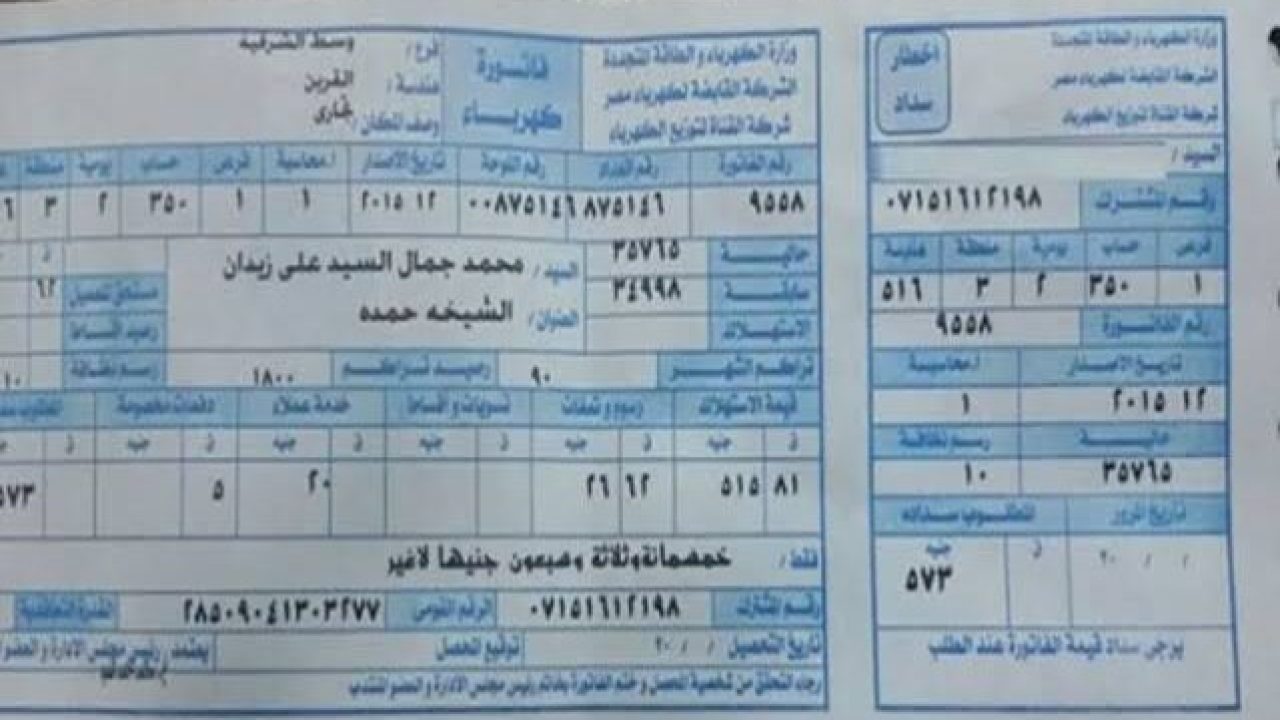 وزارة الكهرباء والطاقة المتجددة
الشركة القابضة لكهرباء مصر
شركة القناة لتوزيع الكهرباء
اخطار سداد
السيد /
رقم المشترك ٠٧١٥١٦١٢١٩٨
فرعى حساب يومية منطقة هندسة
١ ٣٥٠ ٢ ٣ ٥١٦
رقم الفاتورة ٩٥٥٨
تاريخ الاصدار ا.محاسبية
١٢ ٢٠١٥ ١
حاليـة رسم نظافة
٣٥٧٦٥ ١٠
تاريخ المرور المطلوب سداده
/ / ٢٠ ق جنيه
٥٧٣
يرجى سداد قيمة الفاتورة عند الطلب
وزارة الكهرباء والطاقة المتجددة
الشركة القابضة لكهرباء مصر
شركة القناة لتوزيع الكهرباء
فاتورة كهرباء
فرع / وسط الشرقية
هندسة / القرين
وصف المكان / تجارى
رقم الفاتورة رقم العداد رقم اللوحة تاريخ الاصدار ا.محاسبية فرعى حساب يومية منطقة
٩٥٥٨ ٨٧٥١٤٦ ٠٠٨٧٥١٤٦ ١٢ ٢٠١٥ ١ ١ ٣٥٠ ٢ ٣ ٦
حاليـة ٣٥٧٦٥
سابقـة ٣٤٩٩٨
الاستهلاك
السيد / محمد جمال السيد على زيدان
العنوان / الشيخه حمده
ق
مستحق تحصيل ٦٢
رصيد أقساط
تراكم الشهر ٩٠ رصيد تراكم ١٨٠٠ رسم نظافة ١٠
قيمة الاستهلاك رسوم ودمغات تسويات وأقساط خدمة عملاء دفعات مخصومة
ق جنيه ق جنيه ق جنيه ق جنيه ق جنيه ق
٨١ ٥١٥ ٦٢ ٢٦ ٢٠ ٥ ٥٧٣
فقط / خمسمائة وثلاثة وسبعون جنيها لاغير
رقم المشترك ٠٧١٥١٦١٢١٩٨ الرقم القومى ٢٨٥٠٩٠٤١٣٠٣٢٧٧ القدرة التعاقدية
تاريخ التحصيل / / ٢٠ توقيع المحصل يعتمد رئيس مجلس الادارة و العضو
رجاء التحقق من شخصية المحصل و ختم الفاتورة بخاتم رئيس مجلس الادارة و العضو المنتدب